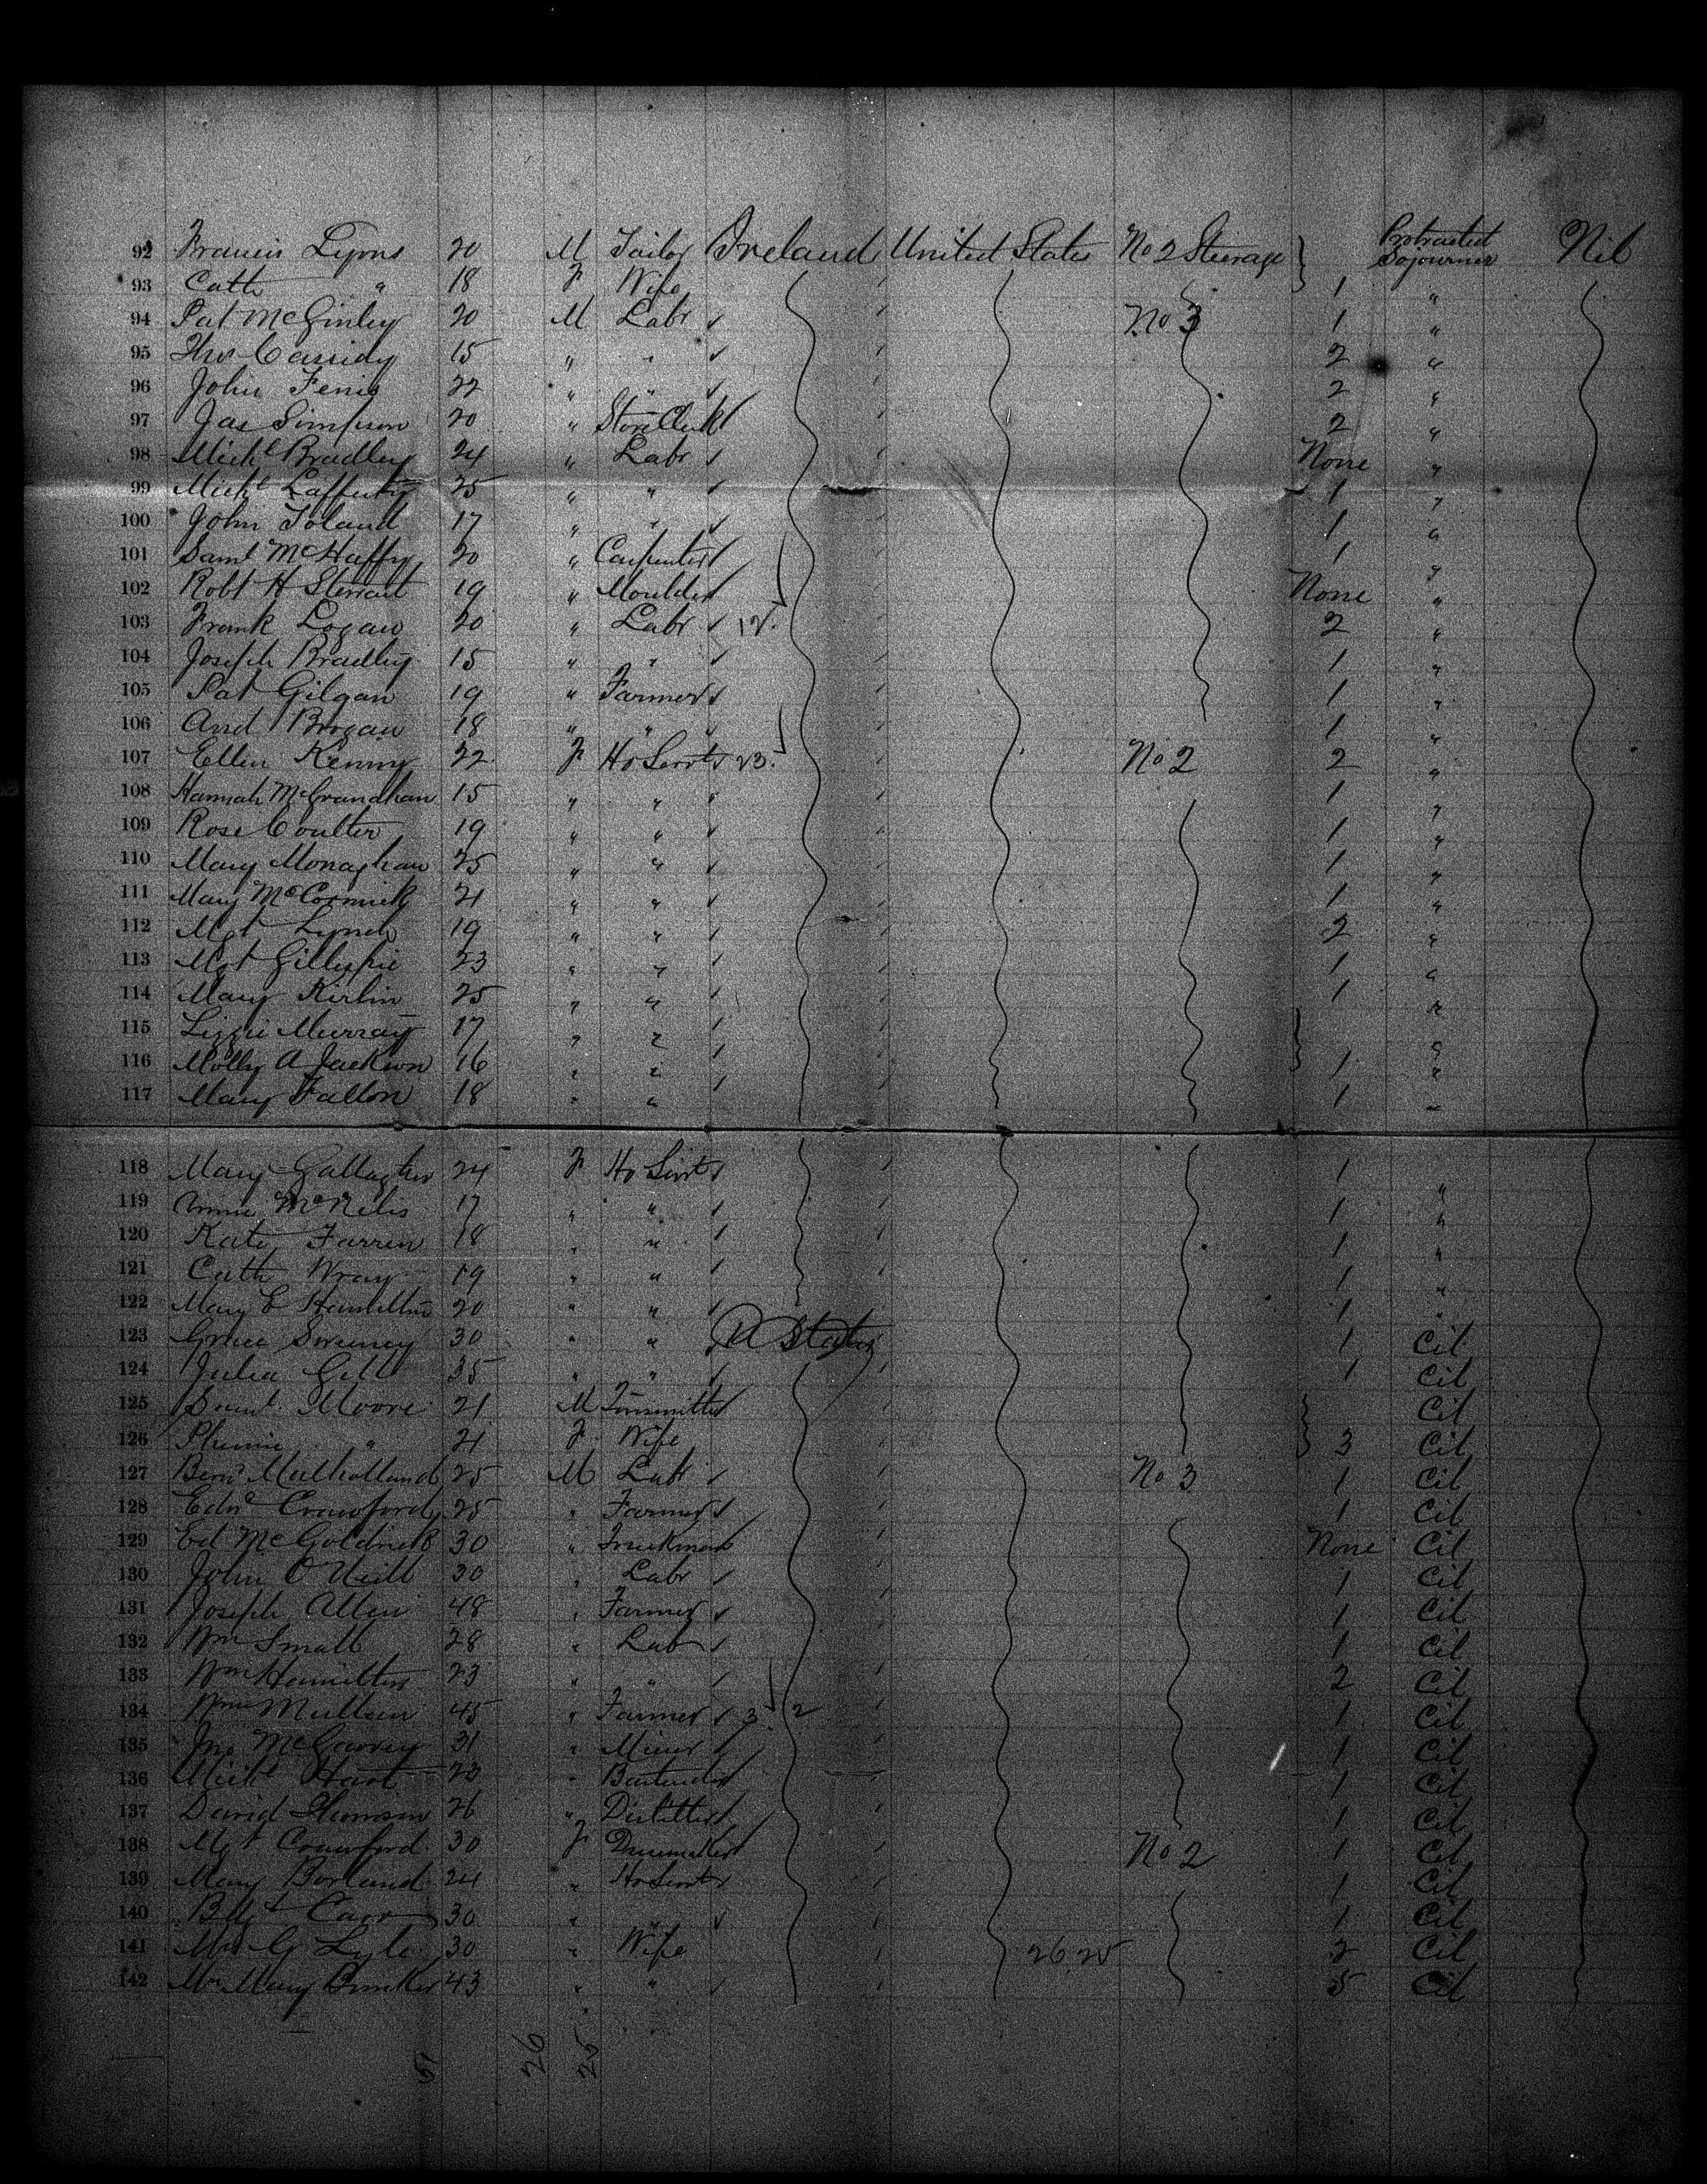 92 Francis Lyons 20 M Tailor Ireland United States No 2 Steerage Protracted Sojourner Nil
93 Cath " 18 F Wife 1 "
94 Pat McGinley 20 M Labr No 3 1 "
95 Thos Cassidy 15 " " 2 "
96 John 22 " " 2 "
97 Jas Simpson 20 " Store Clerk 2 "
98 Michl Bradley 24 " Labr None "
99 Michl Lafferty 25 " " 1 "
100 John Toland 17 " " 1 "
101 Saml McHaffy 20 " Carpenter 1 "
102 Robt H Stewart 19 " Moulder None "
103 Frank Logan 20 " Labr 12. 2 "
104 Joseph Bradley 15 " " 1 "
105 Pat Gilgan 19 " Farmer 1 "
106 And Brogan 18 " " 1 "
107 Ellen Kenny 22 F Ho Servt 23. No 2 2 "
108 Hannah 15 " " 1 "
109 Rose Coulter 19 " " 1 "
110 Mary Monaghan 25 " " 1 "
111 Mary McCormick 21 " " 1 "
112 Mgt Lynch 19 " " 2 "
113 Mgt Gillespie 23 " " 1 "
114 Mary Kirlin 25 " " 1 "
115 Lizzie Murray 17 " " "
116 Molly A Jackson 16 " " 1 "
117 Mary Fallon 18 " " 1 "
118 Mary Gallagher 24 F Ho Servt 1 "
119 Annie McNelis 17 " " 1 "
120 Kate Farren 18 " " 1 "
121 Cath Wray 19 " " 1 "
122 Mary E Hamilton 20 " " 1 "
123 Grace Sweeney 30 " " U States 1 Cit
124 Julia Gill 35 " " 1 Cit
125 Saml Moore 21 M Tinsmith Cit
126 " 21 F Wife 3 Cit
127 Bernd Mulholland 25 M Labr No 3 1 Cit
128 Edwd Crawford 25 " Farmer 1 Cit
129 Ed McGoldrick 30 " Truckman None Cit
130 John O'Neill 30 " Labr 1 Cit
131 Joseph Allen 48 " Farmer 1 Cit
132 Wm Small 28 " Lab 1 Cit
133 Wm Hamilton 23 " " 2 Cit
134 Wm Mullen 45 " Farmer 3 2 1 Cit
135 Jno McGarvey 31 " Miner 1 Cit
136 Michl Hart 23 " Bartender 1 Cit
137 David Thomson 26 " Distiller 1 Cit
138 Mgt Crawford 30 F Dressmaker No 2 1 Cit
139 Mary Borland 24 " Ho Servt 1 Cit
140 Bdgt Carr 30 " " 1 Cit
141 Mrs G Lyle 30 " Wife 26.25 2 Cit
142 Mrs Mary Bunker 43 " " 5 Cit
51 26 25